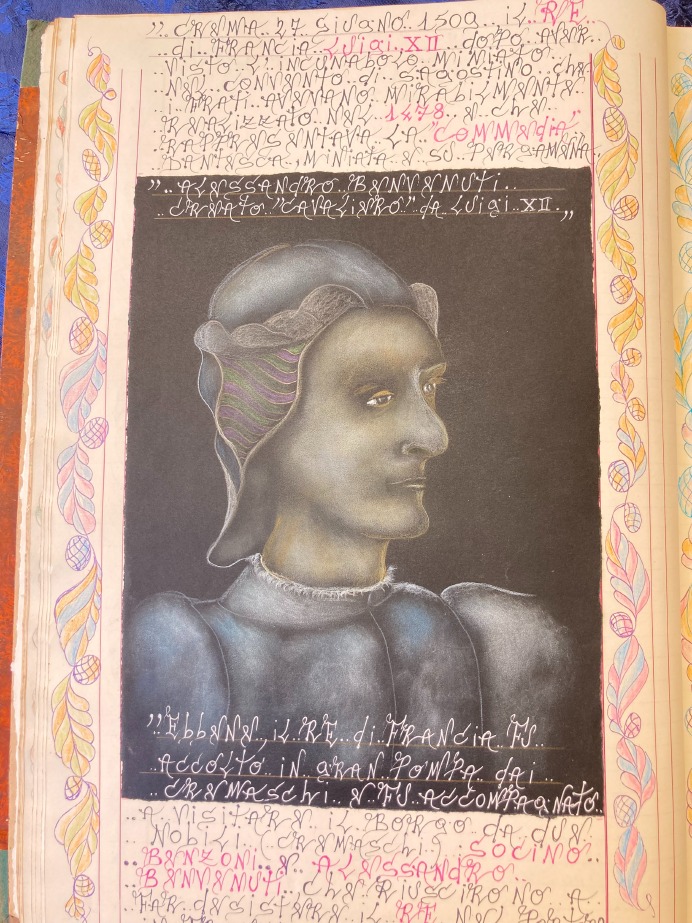 ,, CREMA 27 GiUGNO 1509, iL RE
di FRANCiA LUiGi XII dOPO AVER
ViSTO L'iNCUNAbOLO MiNiATO
NEL CONVENTO di S.AGOSTiNO ChE
i FRATi AVEVANO MiRAbiLMENTE
REALiZZATO NEL 1478 E ChE
RAPPRESENTAVA LA "COMMEdiA"
DANTESCA, MiNiATA E SU PERGAMENA
,, ALESSANDRO BENVENUTi
CREATO "CAVALiERO" dA LUiGi XII. ,,
,, EbbENE, iL RE di FRANCiA FU
ACCOLTO iN GRAN POMPA dAi
CREMASChi E FU ACCOMPAGNATO
A ViSiTARE iL BORGO dA dUE
NObiLi CREMASChi SOCiNO
BENZONi E ALESSANDRO
BENVENUTi ChE RiUSCiRONO A
FAR dESiSTERE iL RE NEL